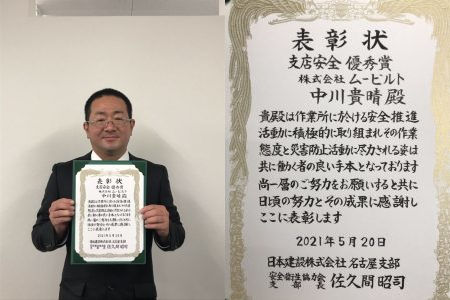 表彰状
支店安全 優秀賞
株式会社 ムービルト
中川貴晴 殿
貴殿は作業所に於ける安全推進
活動に積極的に取り組まれその作業
態度と災害防止活動に尽力される姿は
共に働く者の良い手本となっております
尚一層のご努力をお願いすると共に
日頃の努力とその成果に感謝し
ここに表彰します
2021年5月20日
日本建設株式会社 名古屋支部
安全衛生協力会
支部長 佐久間昭司